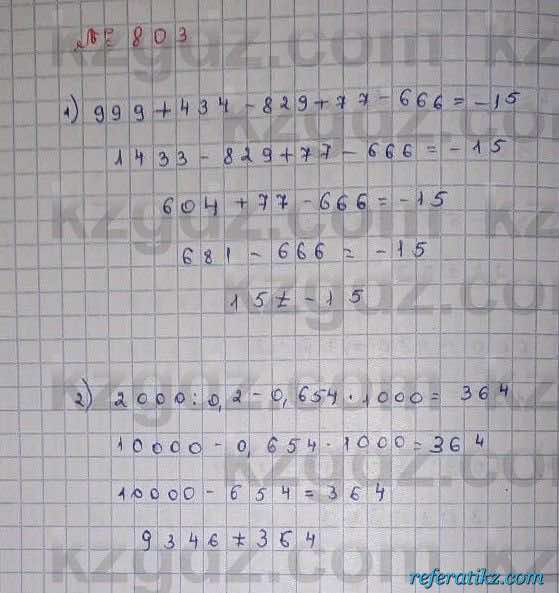 № 803
1) 999 + 434 - 829 + 77 - 666 = -15
1433 - 829 + 77 - 666 = -15
604 + 77 - 666 = -15
681 - 666 = -15
15 ≠ -15
2) 2000 : 0,2 - 0,654 · 1000 = 364
10000 - 0,654 · 1000 = 364
10000 - 654 = 364
9346 ≠ 364
kzgdz.com
referatikz.com